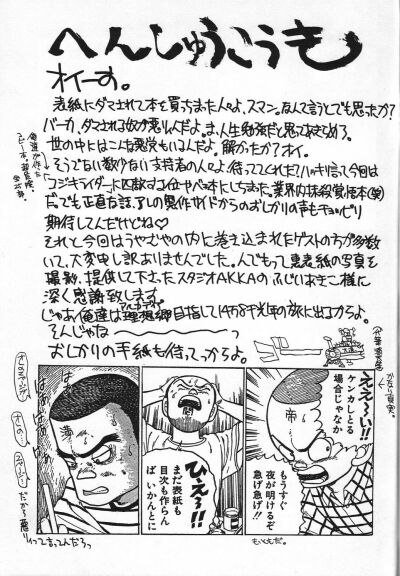 へんしゅうこうき
オイーす。
表紙にダマされて本を買っちまった人々よ、スマン。なんて言うとでも思ったか?
バーカ、ダマされる奴が悪りィんだよ。ま、人生勉強だと思ってあきらめろ。
世の中にはこんな悪党もいるんだよ。解かったか?オイ。
そうでない数少ない支持者の人々よ!待っててくれた?ハッキリ言って今回は
コジキライダーに匹敵する1位ヤバ本にしちまった。業界内抹殺覚悟本(笑)
だでも正直な話、アレの製作サイドからのおしかりの声もチョッピリ
期待してんだけどね♡
それと今回はうやむやの内に巻き込まれたゲストの方が多数
いて、大変申し訳ありませんでした。人でもって裏表紙の写真を
撮影、提供して下さったスタジオAKKAのふじいあきこ様に
深く感謝致します。
じゃあ俺達は理想郷目指して14万8千光年の旅に出るからよ。
そんじゃな〜
おしかりの手紙も待ってっからよ。
ええ〜い!!
ケンカしとる
場合じゃなか
もうすぐ
夜が明けるぞ
急げ急げ!!
もっともだ。
ひえ〜!!
まだ表紙も
目次も作らん
ば いかんとに
だから悪り
ィって言ってんだろっ